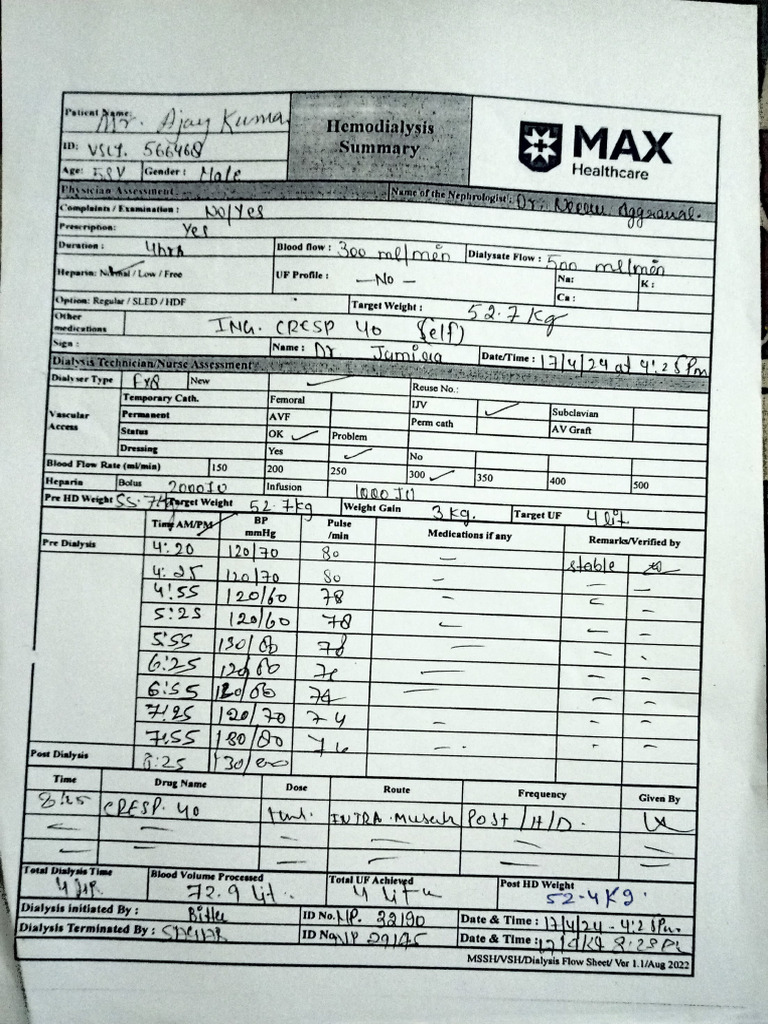 Patient Name: Mr. Ajay Kumar
Hemodialysis Summary
MAX Healthcare
ID: VSLY. 566468
Age: 58Y Gender: Male
Physician Assessment Name of the Nephrologist: Dr. Neeru Aggrawal.
Complaints / Examination: No/Yes
Prescription: Yes
Duration: 4hrs Blood flow: 300 ml/min Dialysate Flow: 500 ml/min
Heparin: Normal / Low / Free UF Profile: - No - Na: K:
Ca:
Option: Regular / SLED / HDF Target Weight: 52.7 Kg
Other medications ING. CRESP 40 (self)
Sign: Name: Dr Date/Time: 17/4/24 at 4:25pm
Dialysis Technician/Nurse Assessment
Dialyser Type New ✓ Reuse No.:
Vascular Access Temporary Cath. Femoral IJV ✓ Subclavian
Permanent AVF Perm cath AV Graft
Status OK ✓ Problem
Dressing Yes ✓ No
Blood Flow Rate (ml/min) 150 200 250 300 ✓ 350 400 500
Heparin Bolus 2000IU Infusion 1000IU
Pre HD Weight 55.7kg Target Weight 52.7kg Weight Gain 3 Kg. Target UF 4 lit
Time AM/PM BP mmHg Pulse /min Medications if any Remarks/Verified by
Pre Dialysis 4:20 120/70 80 - stable
4:25 120/70 80 - - -
4:55 120/60 78 - - -
5:25 120/60 78 - - -
5:55 130/80 78 - - -
6:25 120/80 - - -
6:55 120/80 74 - - -
7:25 120/70 74 - - -
7:55 130/80 - - -
Post Dialysis 8:25 130/80
Time Drug Name Dose Route Frequency Given By
8:25 CRESP 40 INTRA Muscul Post/H/D.
- - - - -
- - - -
Total Dialysis Time 4 HR Blood Volume Processed 72.9 Lit. Total UF Achieved 4 Lit Post HD Weight 52.4 Kg.
Dialysis initiated By: Bittu ID No. NP. 22190 Date & Time: 17/4/24 - 4:25Pm.
Dialysis Terminated By: ID No. NP 29175 Date & Time: 17/4/24 8:25Pm
MSSH/VSH/Dialysis Flow Sheet/ Ver 1.1/Aug 2022